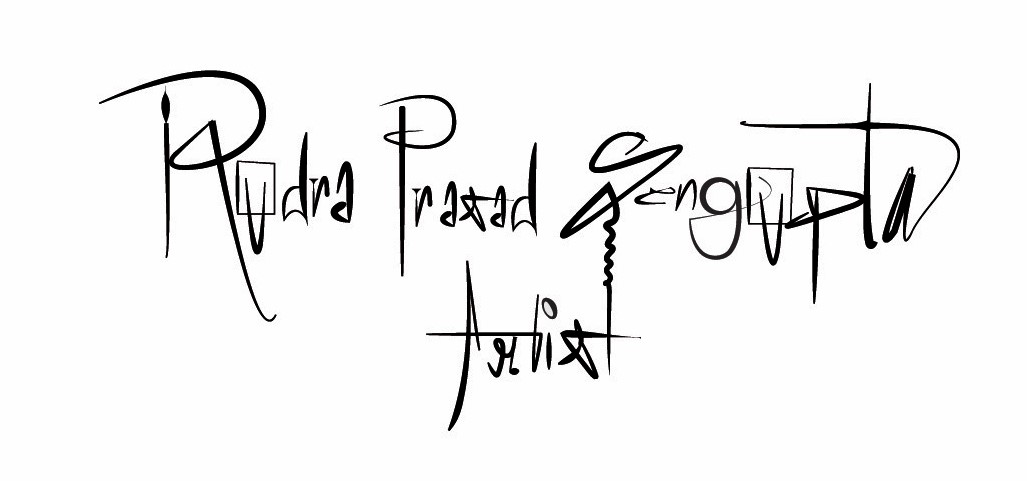 Rudra Prasad Sengupta
Artist